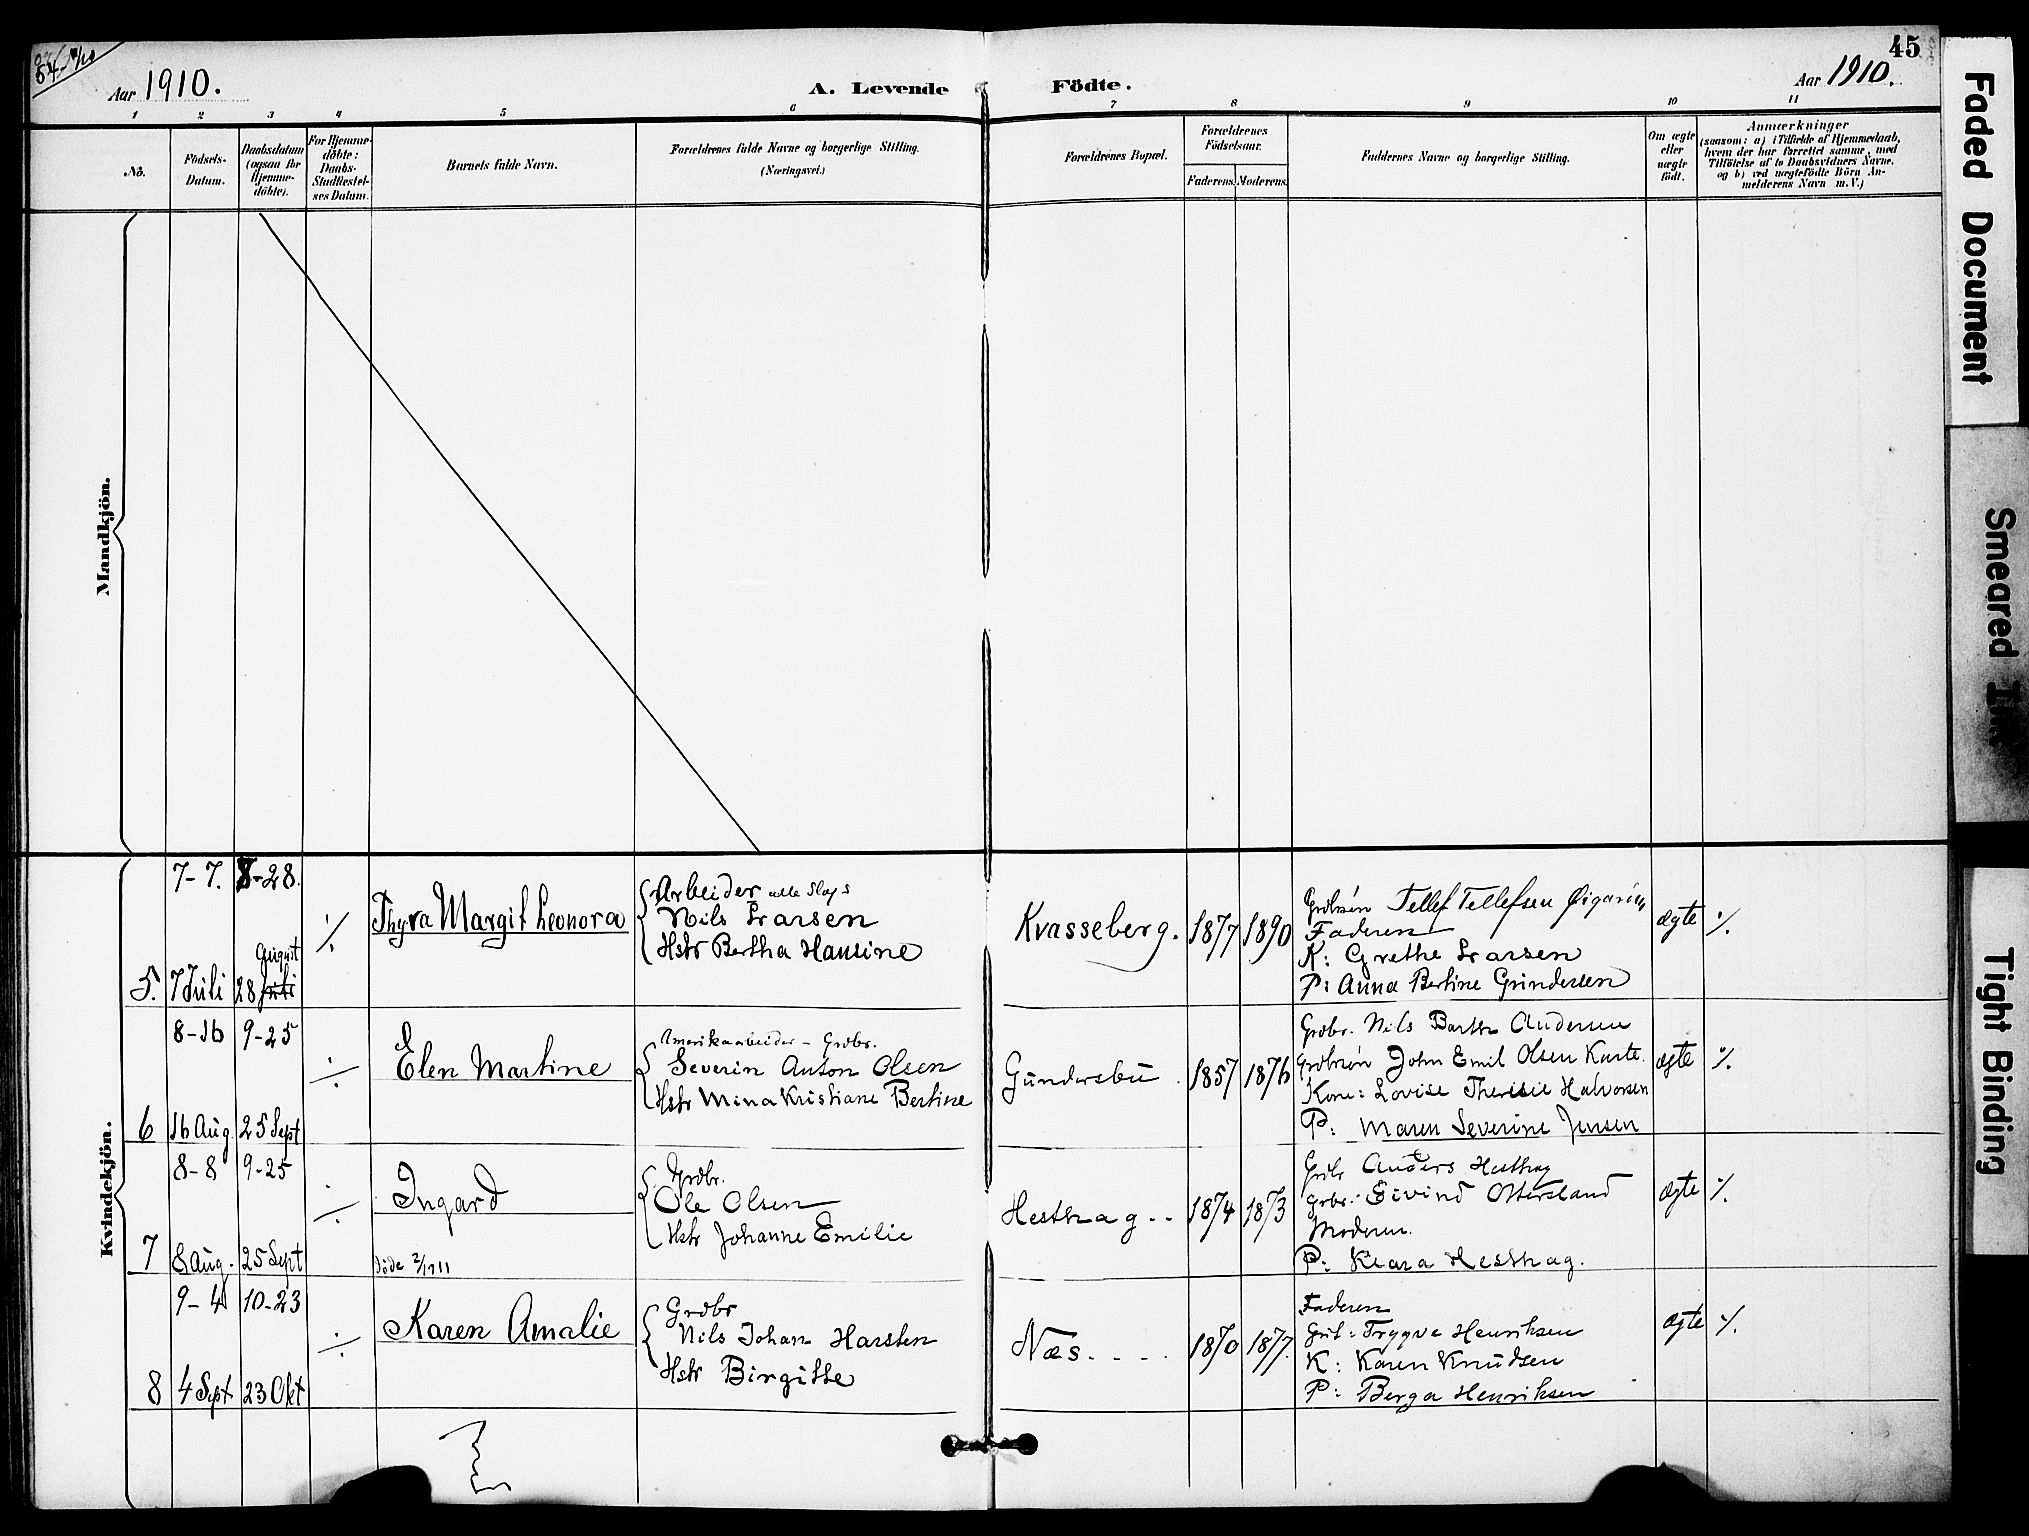 45
Aar 1910.
A. Levende Födte.
Aar 1910.
1 2 3 4 5 6 7 8 9 10 11
No.
Födsels-
Datum.
Daabsdatum
(ogsaa for
Hjemme-
döbte).
For Hjemme-
döbte:
Daabs-
Stadfæstel-
ses Datum.
Barnets fulde Navn.
Forældrenes fulde Navne og borgerlige Stilling.
(Næringsvei.)
Forældrenes Bopæl.
Forældrenes
Födselsaar.
Faderens.
Moderens.
Faddernes Navne og borgerlige Stilling.
Om ægte
eller
uægte
født.
Anmærkninger
(saasom: a) i Tilfælde af Hjemmedaab,
hvem der har forrettet samme, med
Tilföielse af to Daabsvidners Navne,
og b) ved uægtefödte Börn An-
melderens Navn m. V.)
Mandkjön.
Kvindekjön.
7-7.
8-28.
5.
7 Juli
August
28 Juli
Thyra Margit Leonora
Arbeider alle slags
Nils Larsen
Hstr Bertha Hansine
Kvasseberg.
1877
1890
Grdbrsön Tellef Tellefsen
Faderen
K: Grethe Larsen
P: Anna Bertine Grindersen
ægte
8-16
9-25
6
16 Aug
25 Sept
Elen Martine
Amerikaarbeider - Grdbr.
Severin Anton Olsen
Hstr Mina Kristiane Bertine
Gundersbu
1857
1876
Grdbr. Nils Barth Andersen
Grdbrsön John Emil Olsen
Kone: Lovise Theresie Halvorsen
P: Maren Severine Jensen
ægte
8-8
9-25
7
8 Aug.
25 Sept
Ingard
Döde 2/1911
Grdbr.
Ole Olsen
Hstr Johanne Emilie
Hesthag..
1874
1873
Grdbr Anders Hesthag
Grbr. Eivind Ottersland
Moderen.
P: Klara Hesthag.
ægte
9-4
10-23
8
4 Sept
23 Okt
Karen Amalie
Grdbr
Nils Johan Harsten
Hstr Birgitte
Næs....
1870
1877.
Faderen
Grdb: Trygve Henriksen
K: Karen Knudsen
P: Berga Henriksen
ægte
Faded Document
Smeared Ink
Tight Binding